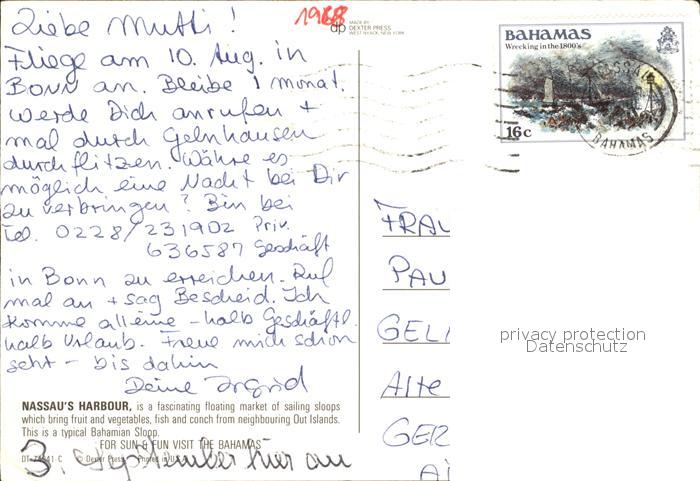 Liebe Mutti!
Fliege am 10. Aug. in
Bonn an. Bleibe 1 Monat.
Werde Dich anrufen +
mal durch Gelnhausen
durchflitzen. Währe es
möglich eine Nacht bei Dir
zu verbringen? Bin bei
Tel. 0228/231902 Priv.
636587 Geschäft
in Bonn zu erreichen. Ruf
mal an + sag Bescheid. Ich
komme alleine - halb Geschäftl.
halb Urlaub. Freue mich schon
seht - bis dahin
Deine Ingrid
NASSAU'S HARBOUR, is a fascinating floating market of sailing sloops
which bring fruit and vegetables, fish and conch from neighbouring Out Islands.
This is a typical Bahamian Sloop.
FOR SUN & FUN VISIT THE BAHAMAS
© Dexter Press Printed in U.S.A.
3. September hier an
1968
dp
MADE BY
DEXTER PRESS
WEST NYACK, NEW YORK
BAHAMAS
Wrecking in the 1800's
16c
NASSAU
BAHAMAS
FRAU
PAU
GEL
Alte
GER
privacy protection
Datenschutz